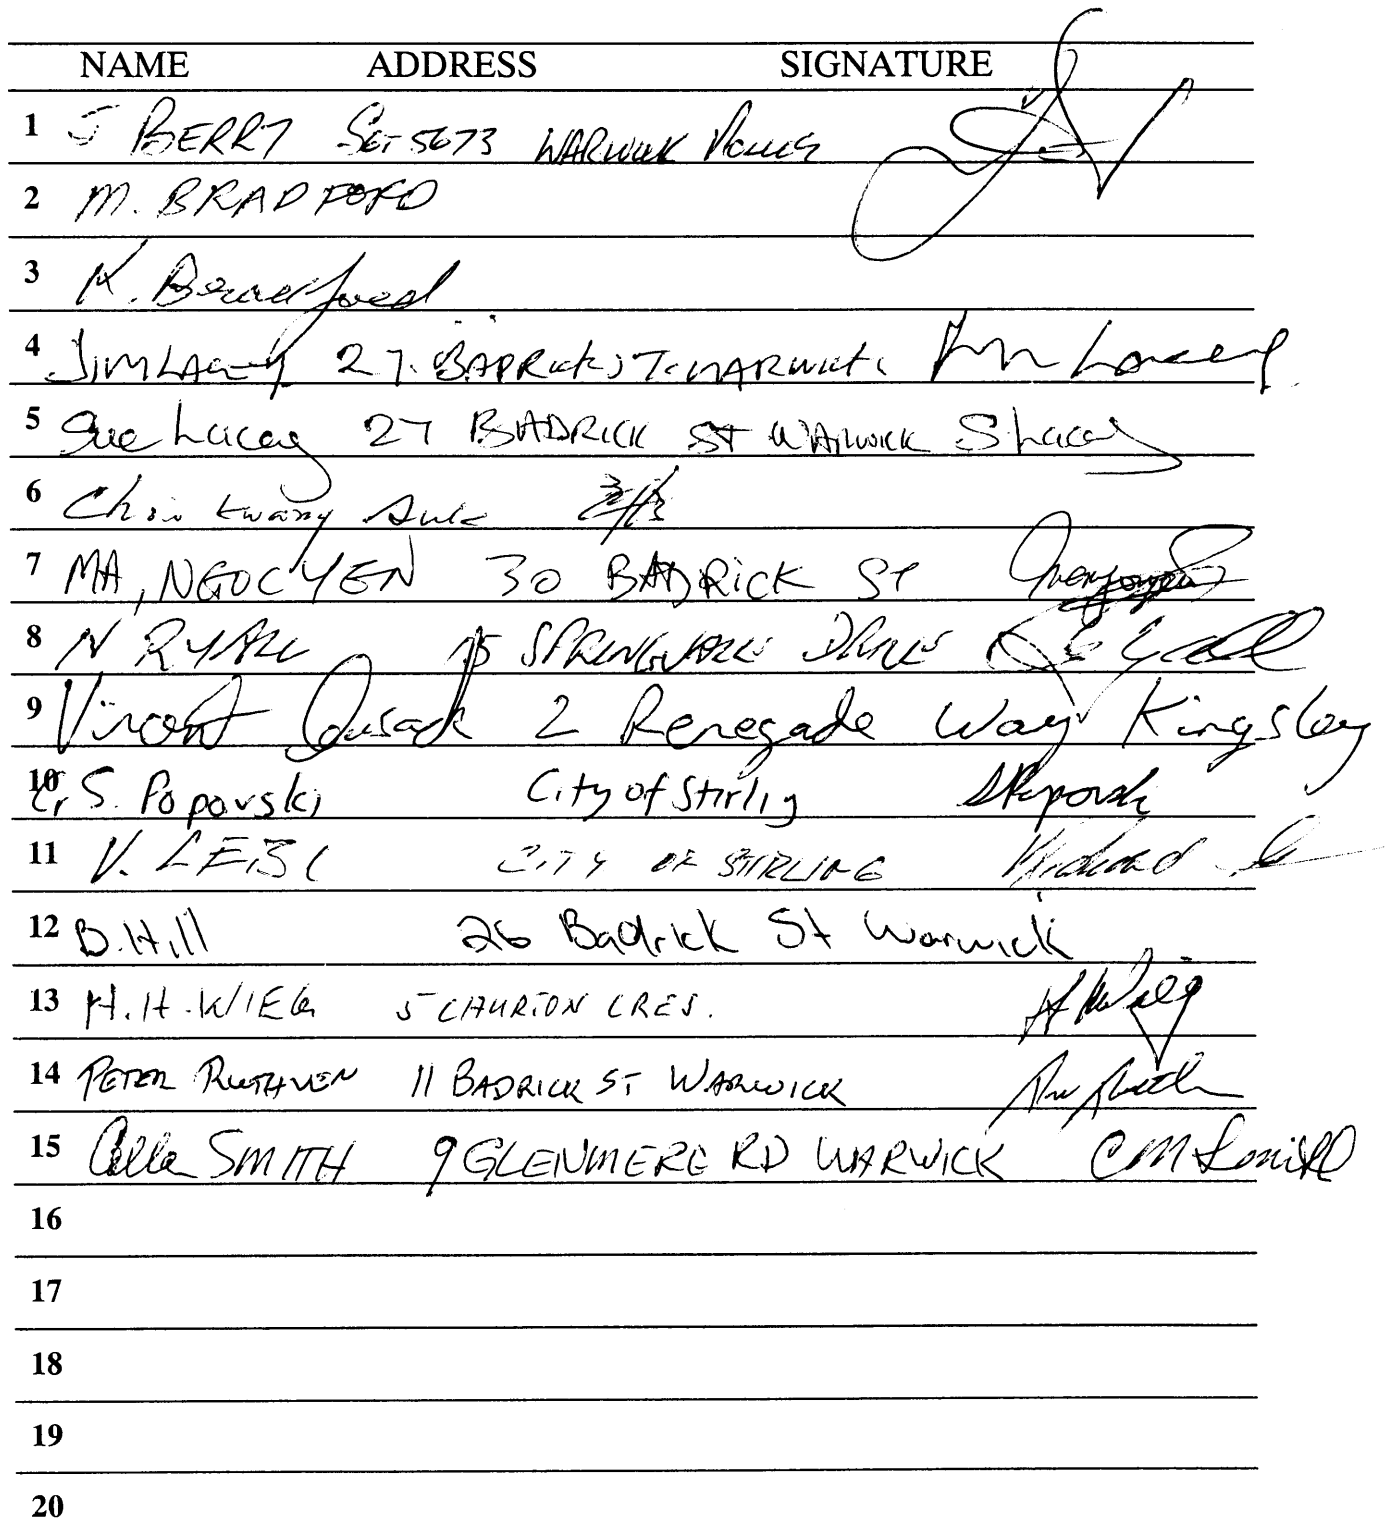 NAME ADDRESS SIGNATURE
1 J BERRY SGT 5673 WARWICK POLICE
2 M. BRADFORD
3 K. Bradford
4 JIM LACEY 27. BADRICK ST. WARWICK.
5 Sue Lacey 27 BADRICK ST WARWICK S Lacey
6 Choi Kwang Suk
7 MA, NGOC YEN 30 BADRICK ST
8 N RYALL 15 SPRINGVALE DRIVE
9 Vincent Cusack 2 Renegade Way Kingsley
10 Cr S. Popovski City of Stirlig S Popovski
11 V. LEISI CITY OF STIRLING
12 B. Hill 26 Badrick St Warwick
13 H.H. WIEG 5 CHURTON CRES.
14 PETER RUTHVEN 11 BADRICK ST WARWICK
15 SMITH 9 GLENMERE RD WARWICK CM Smith
16
17
18
19
20